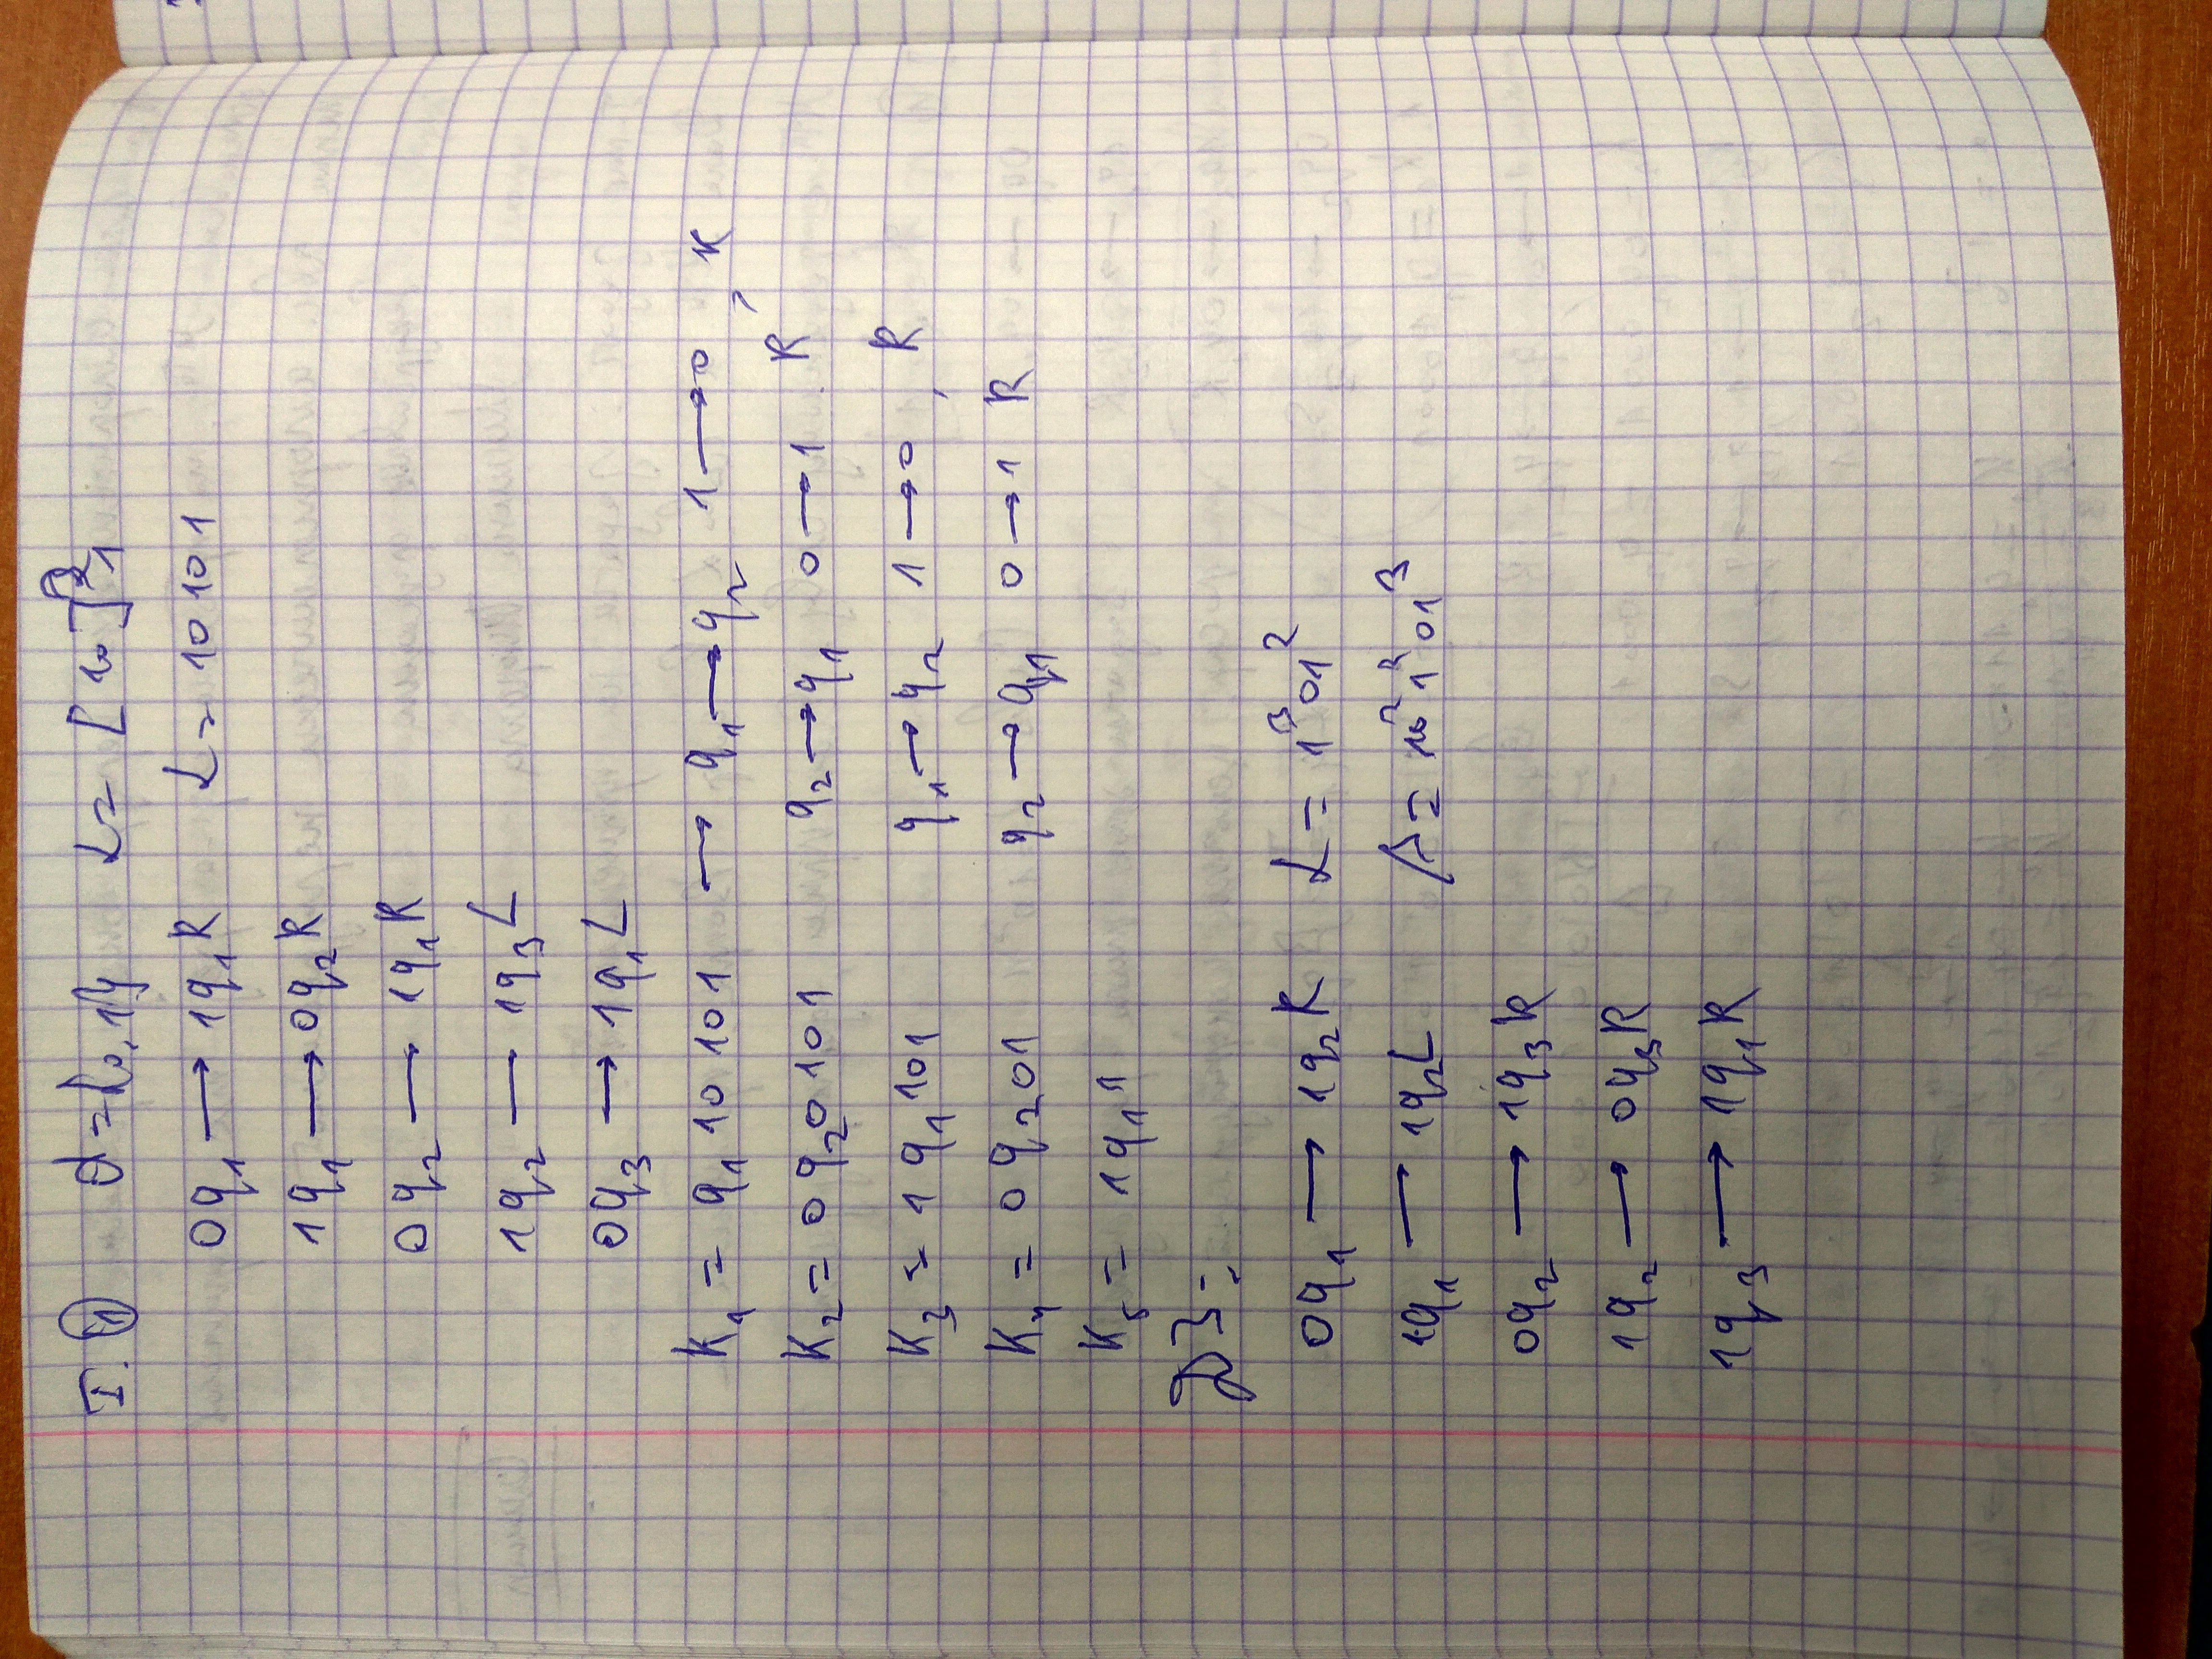 I. ① A = {0, 1} α = [10]²1
0q₁ → 1q₁R α = 10101
1q₁ → 0q₂R
0q₂ — 1q₁R
1q₂ — 1q₃L
0q₃ → 1q₁L
K₁ = q₁10101 → q₁ → q₂ 1 → 0, R
K₂ = 0q₂0101 q₂ → q₁ 0 → 1 R
K₃ = 1q₁101 q₁ → q₂ 1 → 0, R
K₄ = 0q₂01 q₂ → q₁ 0 → 1 R
K₅ = 1q₁1
ДЗ:
0q₁ → 1q₂R α = 1³01²
1q₁ — 1q₂L β = 10²1²01³
0q₂ → 1q₃R
1q₂ → 0q₃R
1q₃ → 1q₁R